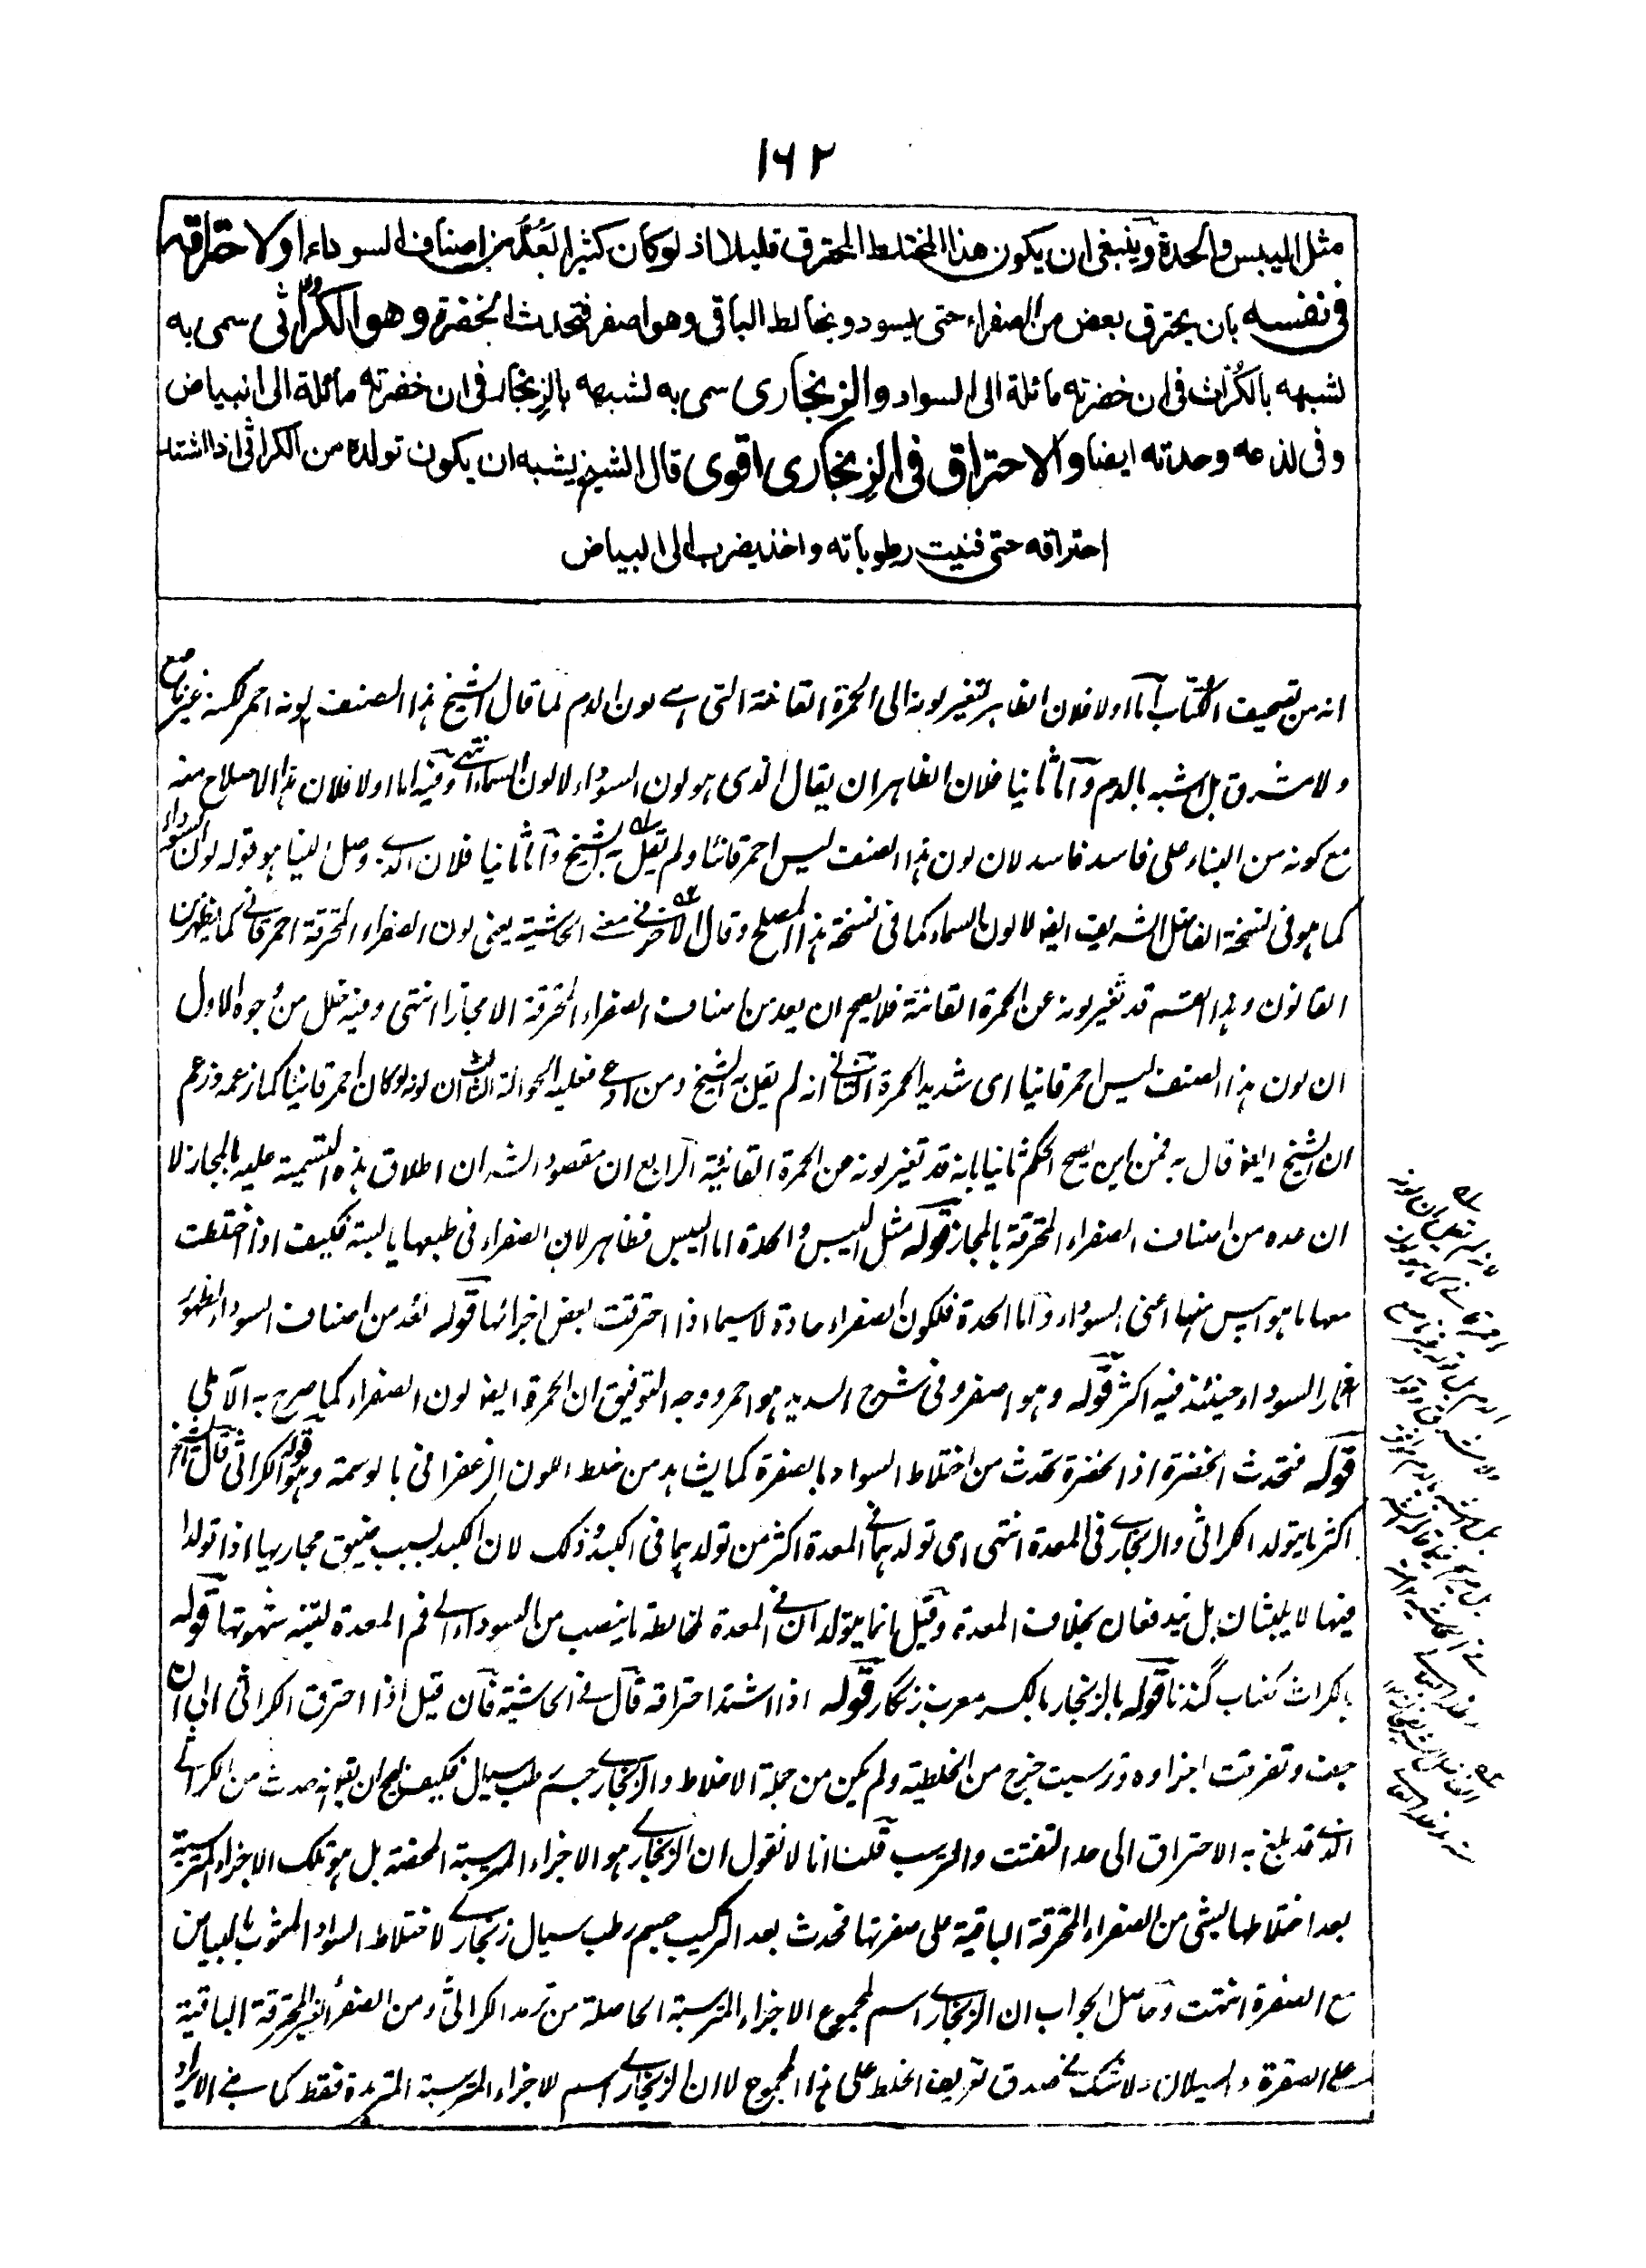 ١٦٢
مثل اليبس والحدة وينبغى ان يكون هذا المختلط المحترق قليلا اذ لو كان كثيرا لعُدّ من اصناف السوداء او لاحتراقه
فى نفسه بان يحترق بعض من الصفراء حتى يسود ويخالط الباقى وهو اصفر فتحدث الخضرة وهو الكُرّاثى سمى به
لشبهه بالكُرّاث فى ان خضرته مائلة الى السواد والزنجارى سمى به لشبهه بالزنجار فى ان خضرته مائلة الى البياض
وفى لذعه وحدته ايضا والاحتراق فى الزنجارى اقوى قال الشيخ يشبه ان يكون تولده من الكراثى اذا اشتد
احتراقه حتى فنيت رطوباته واخذ يضرب الى البياض
انه من تصحيف الكُتّاب اما اولا فلان الظاهر لتغير لونه الى الحمرة القانئة التى هى لون الدم لما قال الشيخ هذا الصنف لونه احمر لكنه غير ناصع
ولا مشرق بل اشبه بالدم واما ثانيا فلان الظاهر ان يقال الذى هو لون السوداء لا لون السماء انتهى وفيه اما اولا فلان هذا الاصلاح منه
مع كونه من البناء على فاسد فاسد لان لون هذا الصنف ليس احمر قانئا ولم يقل به الشيخ واما ثانيا فلان الذى وصل الينا هو قوله لون السوداء
كما هو فى نسخة الفاضل الشريف ايضا لا لون السماء كما فى نسخة هذا المصلح وقال الآخر فى الحاشية يعنى لون الصفراء المحترقة احمر قانى كما يظهر من
القانون وهذا القسم قد تغير لونه عن الحمرة القانئة فلا يصح ان يعد من اصناف الصفراء المحترقة الا مجازا انتهى وفيه خلل من وجوه الاول
ان لون هذا الصنف ليس احمر قانيا اى شديد الحمرة الثانى انه لم يقل به الشيخ ومن ادعى فعليه الحوالة الثالث ان لونه لو كان احمر قانيا كما زعمه وزعم
ان الشيخ ايضا قال به فمن اين يصح الحكم ثانيا بانه قد تغير لونه من الحمرة القانئية الرابع ان مقصود الشه ان اطلاق هذه التسمية عليه بالمجاز لا
ان عده من اصناف الصفراء المحترقة بالمجاز قوله مثل اليبس والحدة اما اليبس فظاهر لان الصفراء فى طبعها يابسة فكيف اذا اختلطت
معها ما هو ايبس منها اعنى السوداء واما الحدة فلكون الصفراء حادة لاسيما اذا احترقت بعض اجزائها قوله لعُد من اصناف السوداء لظهور
آثار السوداء حينئذ فيه اكثر قوله وهو اصفر وفى شرح السديد هو احمر ووجه التوفيق ان الحمرة ايضا لون الصفراء كما صرح به الآملى
قوله فتحدث الخضرة اذ الخضرة تحدث من اختلاط السواد بالصفرة كما يشاهد من خلط اللون الزعفرانى بالوسمة قوله وهو الكراثى قال الشيخ
اكثر ما يتولد الكراثى والزنجارى فى المعدة انتهى اى تولدهما فى المعدة اكثر من تولدهما فى الكبد وذلك لان الكبد لسبب ضيق مجاريها اذا تولدا
فيها لا يلبثان بل يندفعان بخلاف المعدة وقيل انما يتولدان فى المعدة لمخالطة ما ينصب من السوداء الى فم المعدة لتنبه شهوتها قوله
بالكراث كغُراب گندنا قوله بالزنجار بالكسر معرب زنگار قوله اذا اشتد احتراقه قال فى الحاشية فان قيل اذا احترق الكراثى الى ان
جف وتفرقت اجزاوه وترسبت خرج من الخلطية ولم يكن من جملة الاخلاط والزنجارى جسم رطب سيال فكيف يصح ان يقولوا انه حدث من الكراثى
الذى قد بلغ به الاحتراق الى حد التفتت والترسب قلنا انا لا نقول ان الزنجارى هو الاجزاء المترسبة المحضة بل هو تلك الاجزاء المترسبة
بعد اختلاطها بشئ من الصفراء المحترقة الباقية على صفرتها فحدث بعد التركيب جسم رطب سيال زنجارى لاختلاط السواد المشوب بالبياض
مع الصفرة انتهت وحاصل الجواب ان الزنجارى اسم لمجموع الاجزاء المترسبة الحاصلة من ترمد الكراثى ومن الصفراء الغير المحترقة الباقية
على الصفرة والسيلان ولا شك فى صدق تعريف الخلط على هذا المجموع لا ان الزنجارى اسم للاجزاء المترسبة المترمدة فقط كما فى الايراد